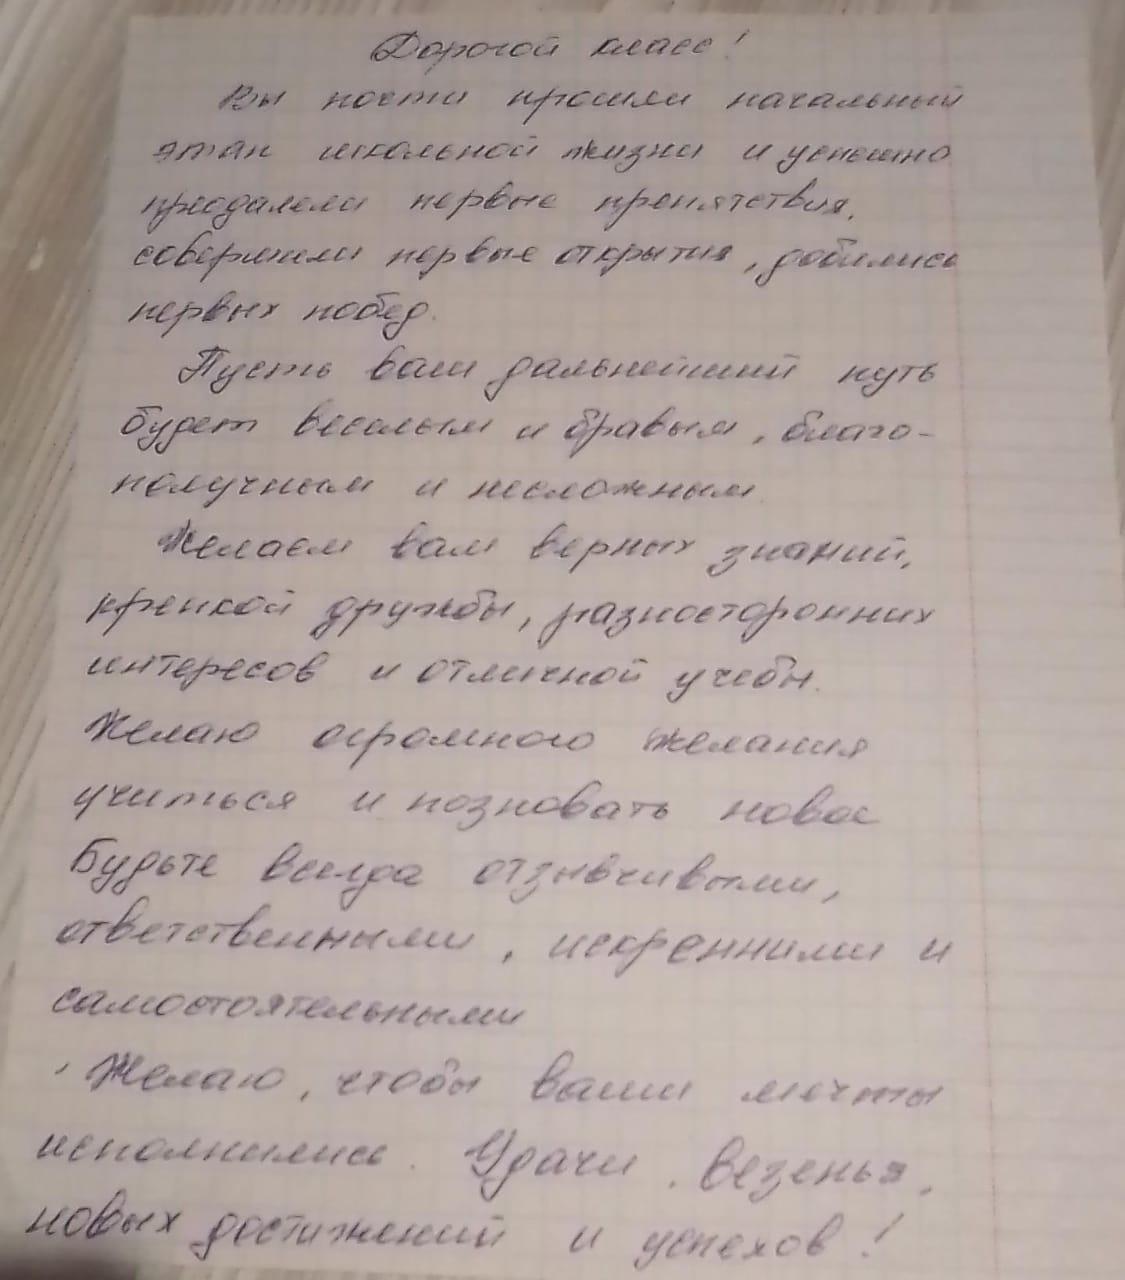 Дорогой класс!
Вы почти прошли начальный
этап школьной жизни и успешно
преодалели первые препятствия,
совершили первые открытия, добились
первых побед.
Пусть ваш дальнейший путь
будет веселым и бравым, благо-
получным и несложным.
Желаем вам верных знаний,
крепкой дружбы, разносторонних
интересов и отличной учебы.
Желаю огромного желания
учиться и позновать новое
Будьте всегда отзывчивыми,
ответственными, искренними и
самостоятельными
Желаю, чтобы ваши мечты
исполнились. Удачи, везенья,
новых достижений и успехов!